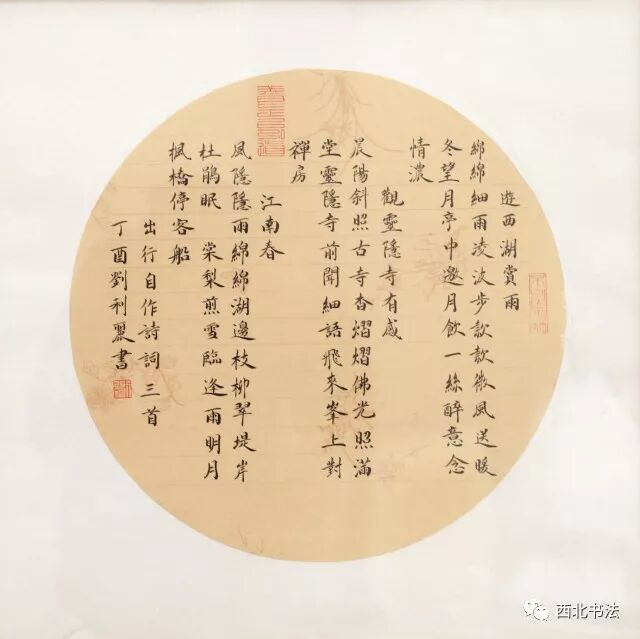 遊西湖賞雨
綿綿細雨凌波步款款微風送暖
冬望月亭中邀月飲一絲醉意念
情濃
觀靈隱寺有感
晨陽斜照古寺杳熠熠佛光照滿
堂靈隱寺前聞細語飛來峯上對
禪房
江南春
風隱隱雨綿綿湖邊枝柳翠堤岸
杜鵑眠 棠梨煎雪臨逢雨明月
楓橋停客船
出行自作詩詞三首
丁酉劉利麗書
西北书法